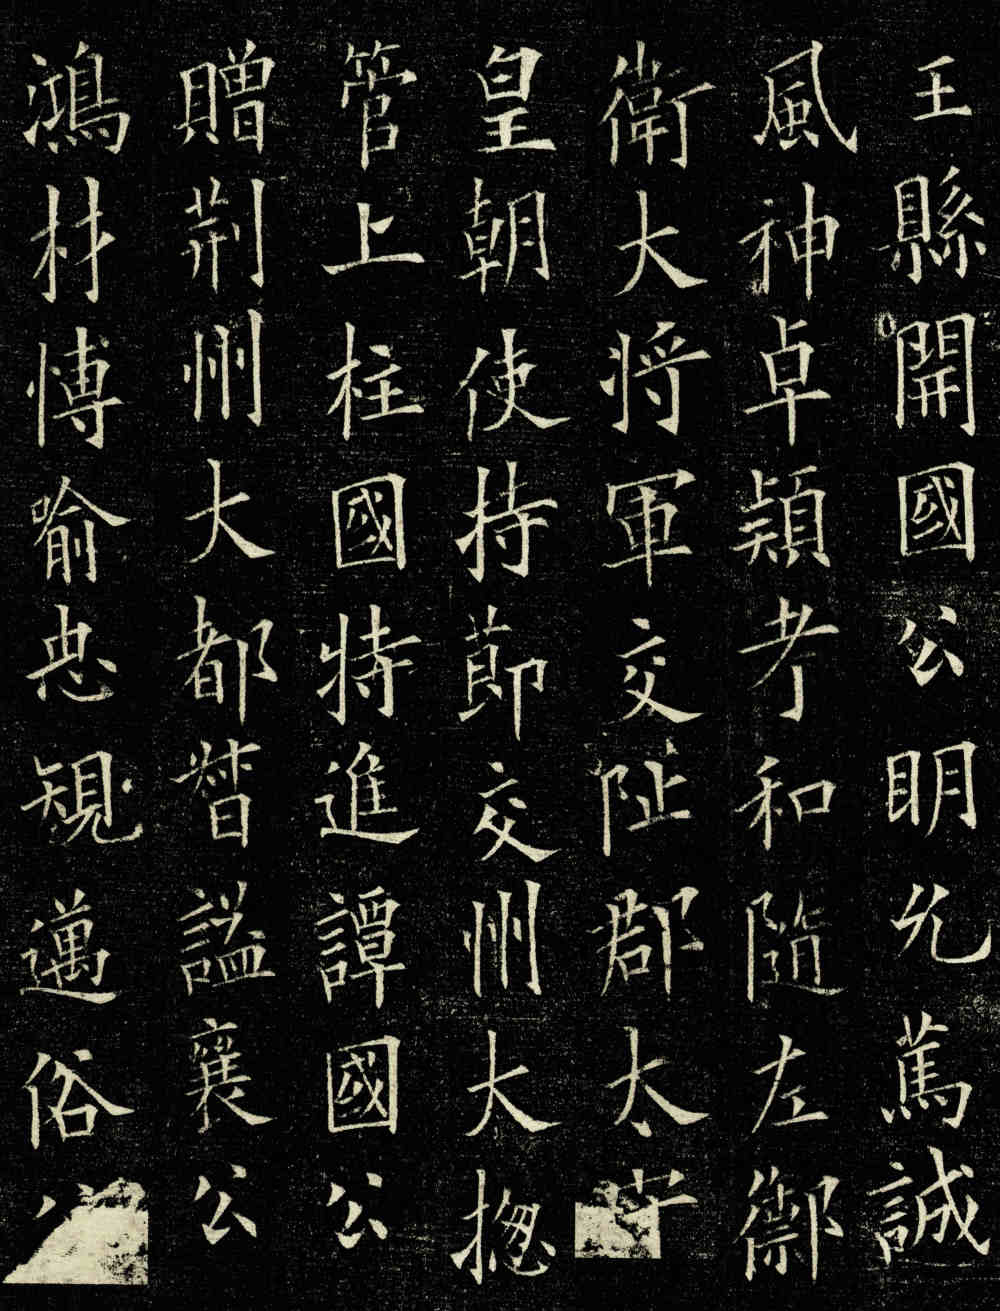 王縣開國公明允篤誠
風神卓穎考和隨左禦
衛大将軍交阯郡太
皇朝使持莭交州大摠
管上柱國特進譚國公
贈荊州大都督謚襄公
鴻材愽喻忠䂓邁俗